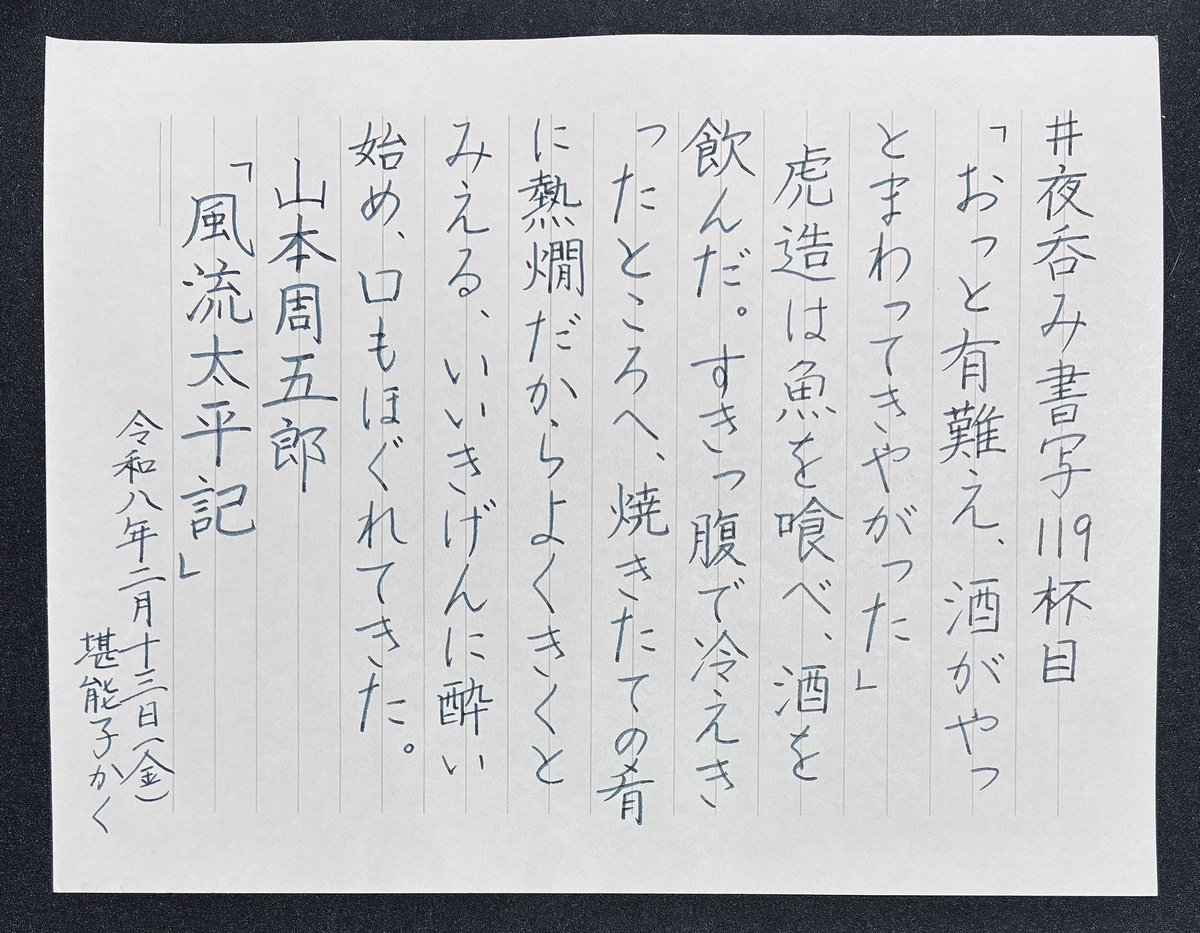 #夜呑み書写119杯目
「おっと有難え、酒がやっ
とまわってきやがった」
虎造は魚を喰べ、酒を
飲んだ。すきっ腹で冷えき
ったところへ、焼きたての肴
に熱燗だからよくきくと
みえる、いいきげんに酔い
始め、口もほぐれてきた。
山本周五郎
「風流太平記」
令和八年二月十三日(金)
堪能子かく